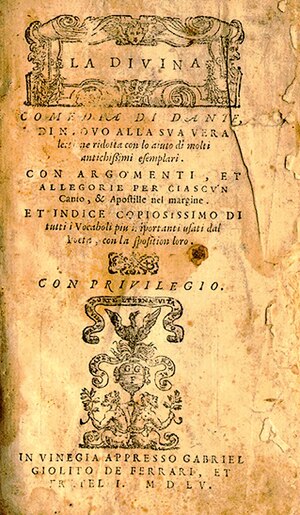 LA DIVINA
COMEDIA DI DANTE,
DI NUOVO ALLA SVA VERA
lettione ridotta con lo aiuto di molti
antichissimi esemplari.
CON ARGOMENTI, ET
ALLEGORIE PER CIASCVN
Canto, & Apostille nel margine.
ET INDICE COPIOSISSIMO DI
tutti i Vocaboli piu importanti usati dal
Poeta, con la sposition loro.
CON PRIVILEGIO.
ETERNA VITA
IN VINEGIA APPRESSO GABRIEL
GIOLITO DE FERRARI, ET
FRATELLI. MDLV.